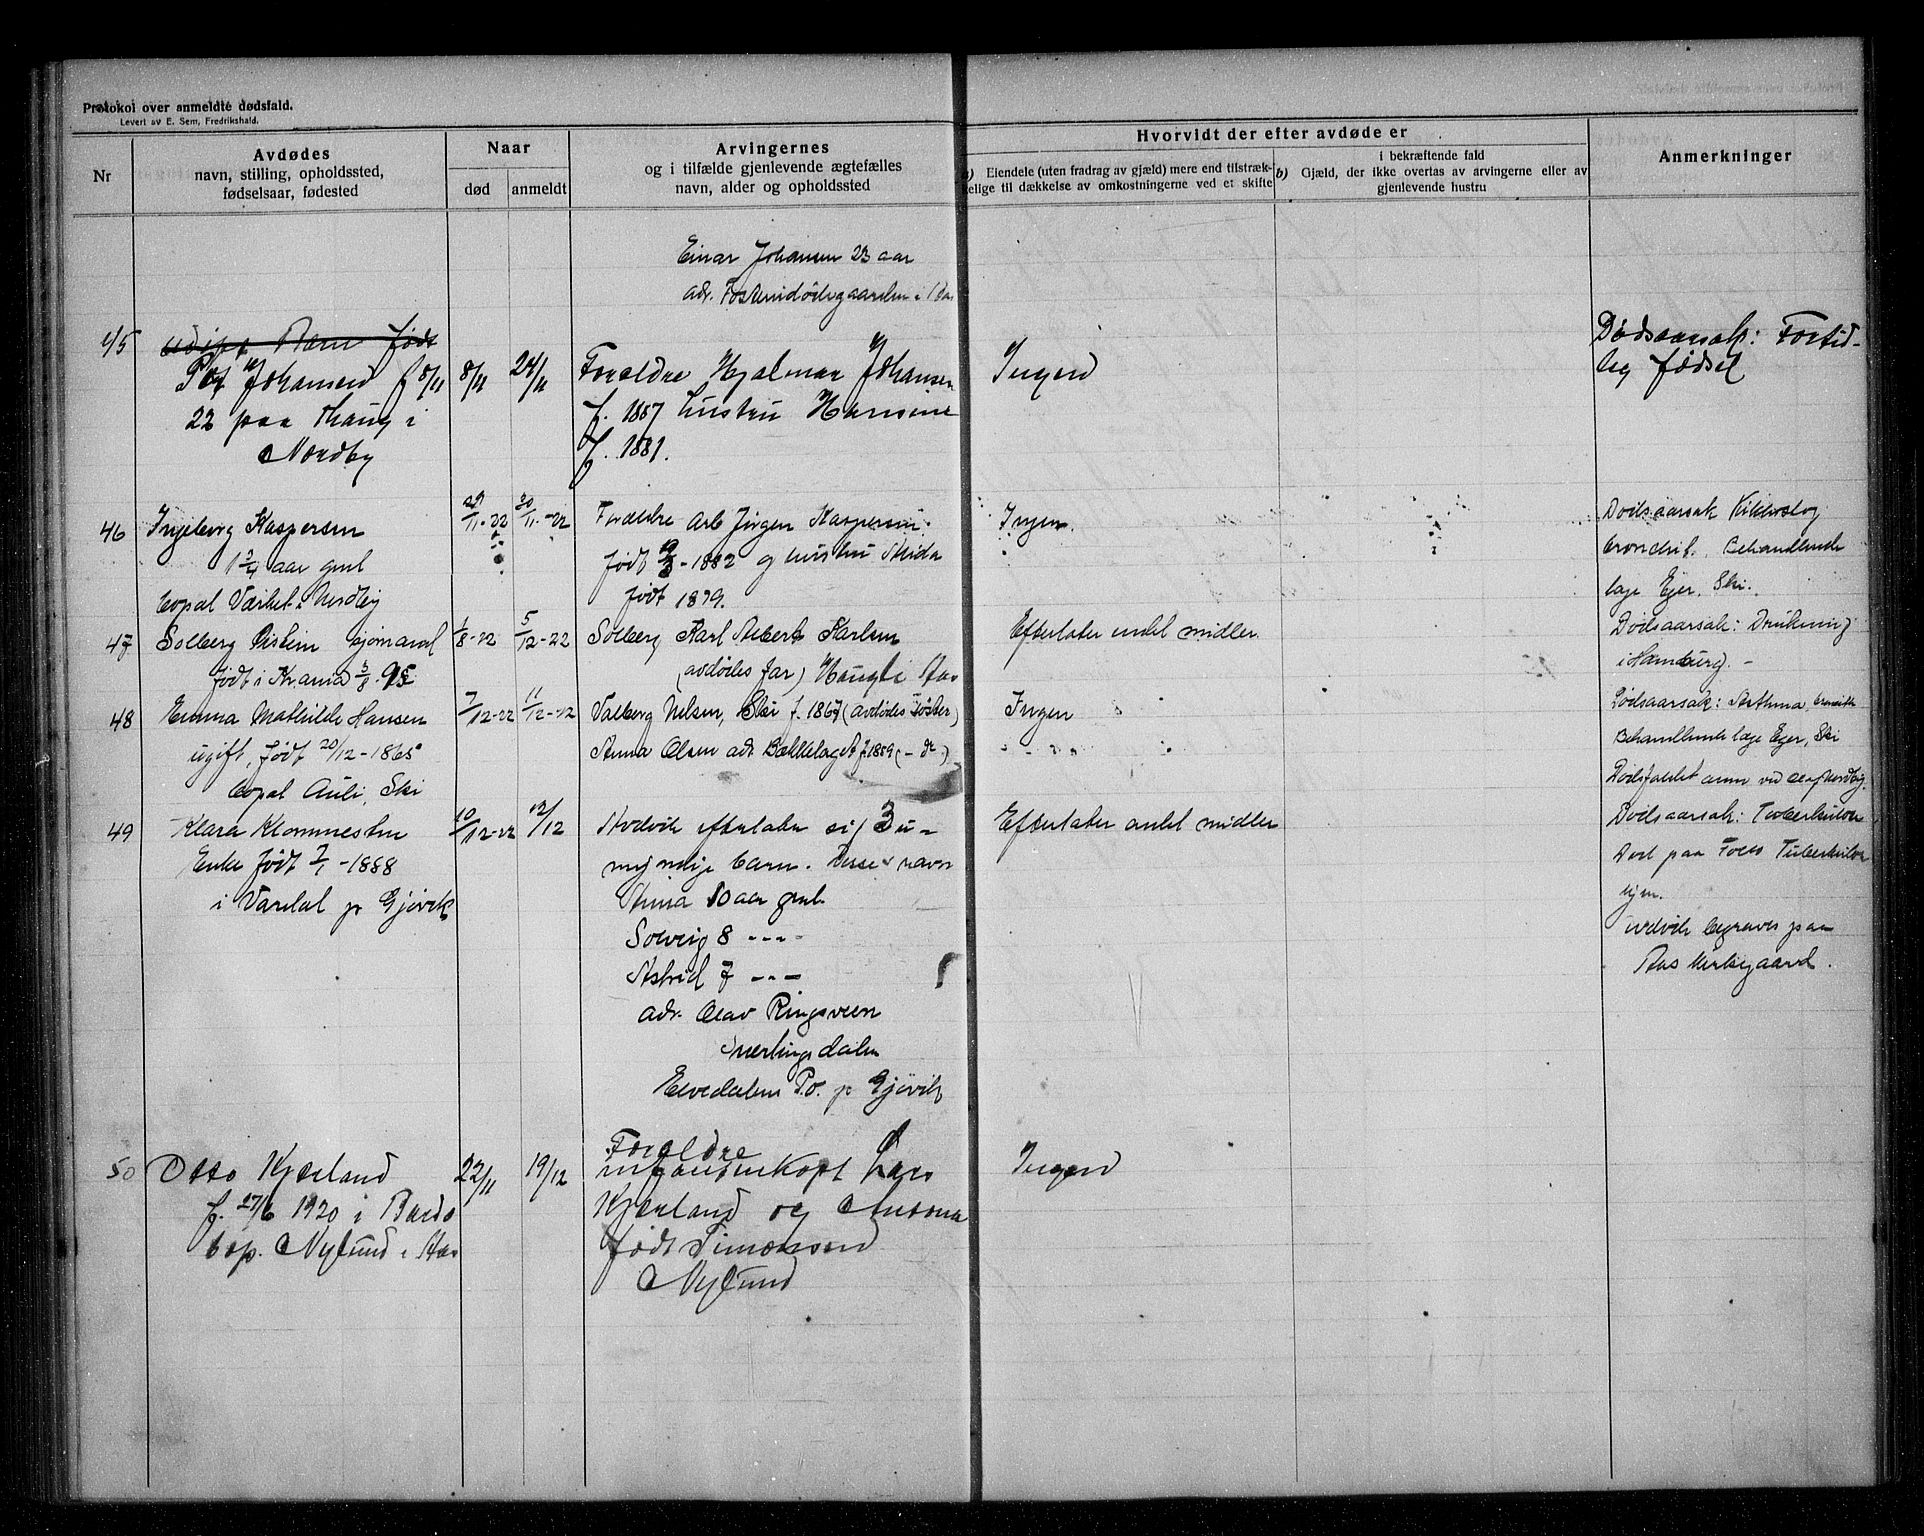 Protokol over anmeldte dødsfald.
Levert av E. Sem, Fredrikshald.
Nr
Avdødes
navn, stilling, opholdssted,
fødselsaar, fødested
Naar
død
anmeldt
Arvingernes
og i tilfælde gjenlevende ægtefælles
navn, alder og opholdssted
Hvorvidt der efter avdøde er
a) Eiendele (uten fradrag av gjæld) mere end tilstræk-
kelige til dækkelse av omkostningerne ved et skifte
b) i bekræftende fald
Gjæld, der ikke overtas av arvingerne eller av
gjenlevende hustru
Anmerkninger
Einar Johansen 23 aar
adr. i Aas
45
Barn født
Johansen f 8/11
22 paa Haug i
Nordby
8/11
24/11
Foreldre Hjalmar Johansen
f. 1887 hustru Hansine
f. 1881.
Ingen
Dødsaarsak: Fortid-
lig fødsel
46
Ingeborg Kaspersen
1 3/4 aar gml
bopal Værket i Nordby
29/11-22
30/11-22
Foreldre arb Jørgen Kaspersen
født 19/3-1882 og hustru
født 1879.
Ingen.
Dødsaarsak Kikhoste og
bronchit. Behandlende
læge Ejer, Ski.
47
Solberg Øistein sjømand
født i Krania 3/8 95
1/8-22
5/12-22
Solberg Karl Albert Karlsen
(avdødes far) Haugli Aas
Efterlater endel midler
Dødsaarsak: Drukning
i Hamburg. -
48
Emma Mathilde Hansen
ugift, født 20/12-1865
bopal Auli, Ski
7/12-22
11/12-22
Valborg Nelsen, Ski f. 1867 (avdødes søster)
Anna Olsen adr Bækkelaget f. 1859 (- do -)
Ingen
- " -
Dødsaarsak: Asthma,
Behandlende læge Ejer, Ski
Dødsfaldet anm ved Nordby.
49
Klara Klommesten
Enke født 7/1-1888
i Vardal pr Gjøvik
10/12-22
12/12
Avdøde efterlater sig 3 u-
myndige barn. Disses navn
Anna 10 aar gml.
Solveig 8 - - -
Astrid 7 - - -
adr. Olav Ringsveen
Snertingdalen
P.O. pr Gjøvik
Efterlater endel midler
Dødsaarsak: Tuberkulose
Død paa Follo Tuberkulose
hjem.
Avdøde begraves paa
Aas kirkegaard.
50
Otto Kjærland
f. 27/6 1920 i Bardo
bop. Nylund i Aas
22/11
19/12
Foreldre
Lars
Kjærland og
født Simonsen
Nylund
Ingen